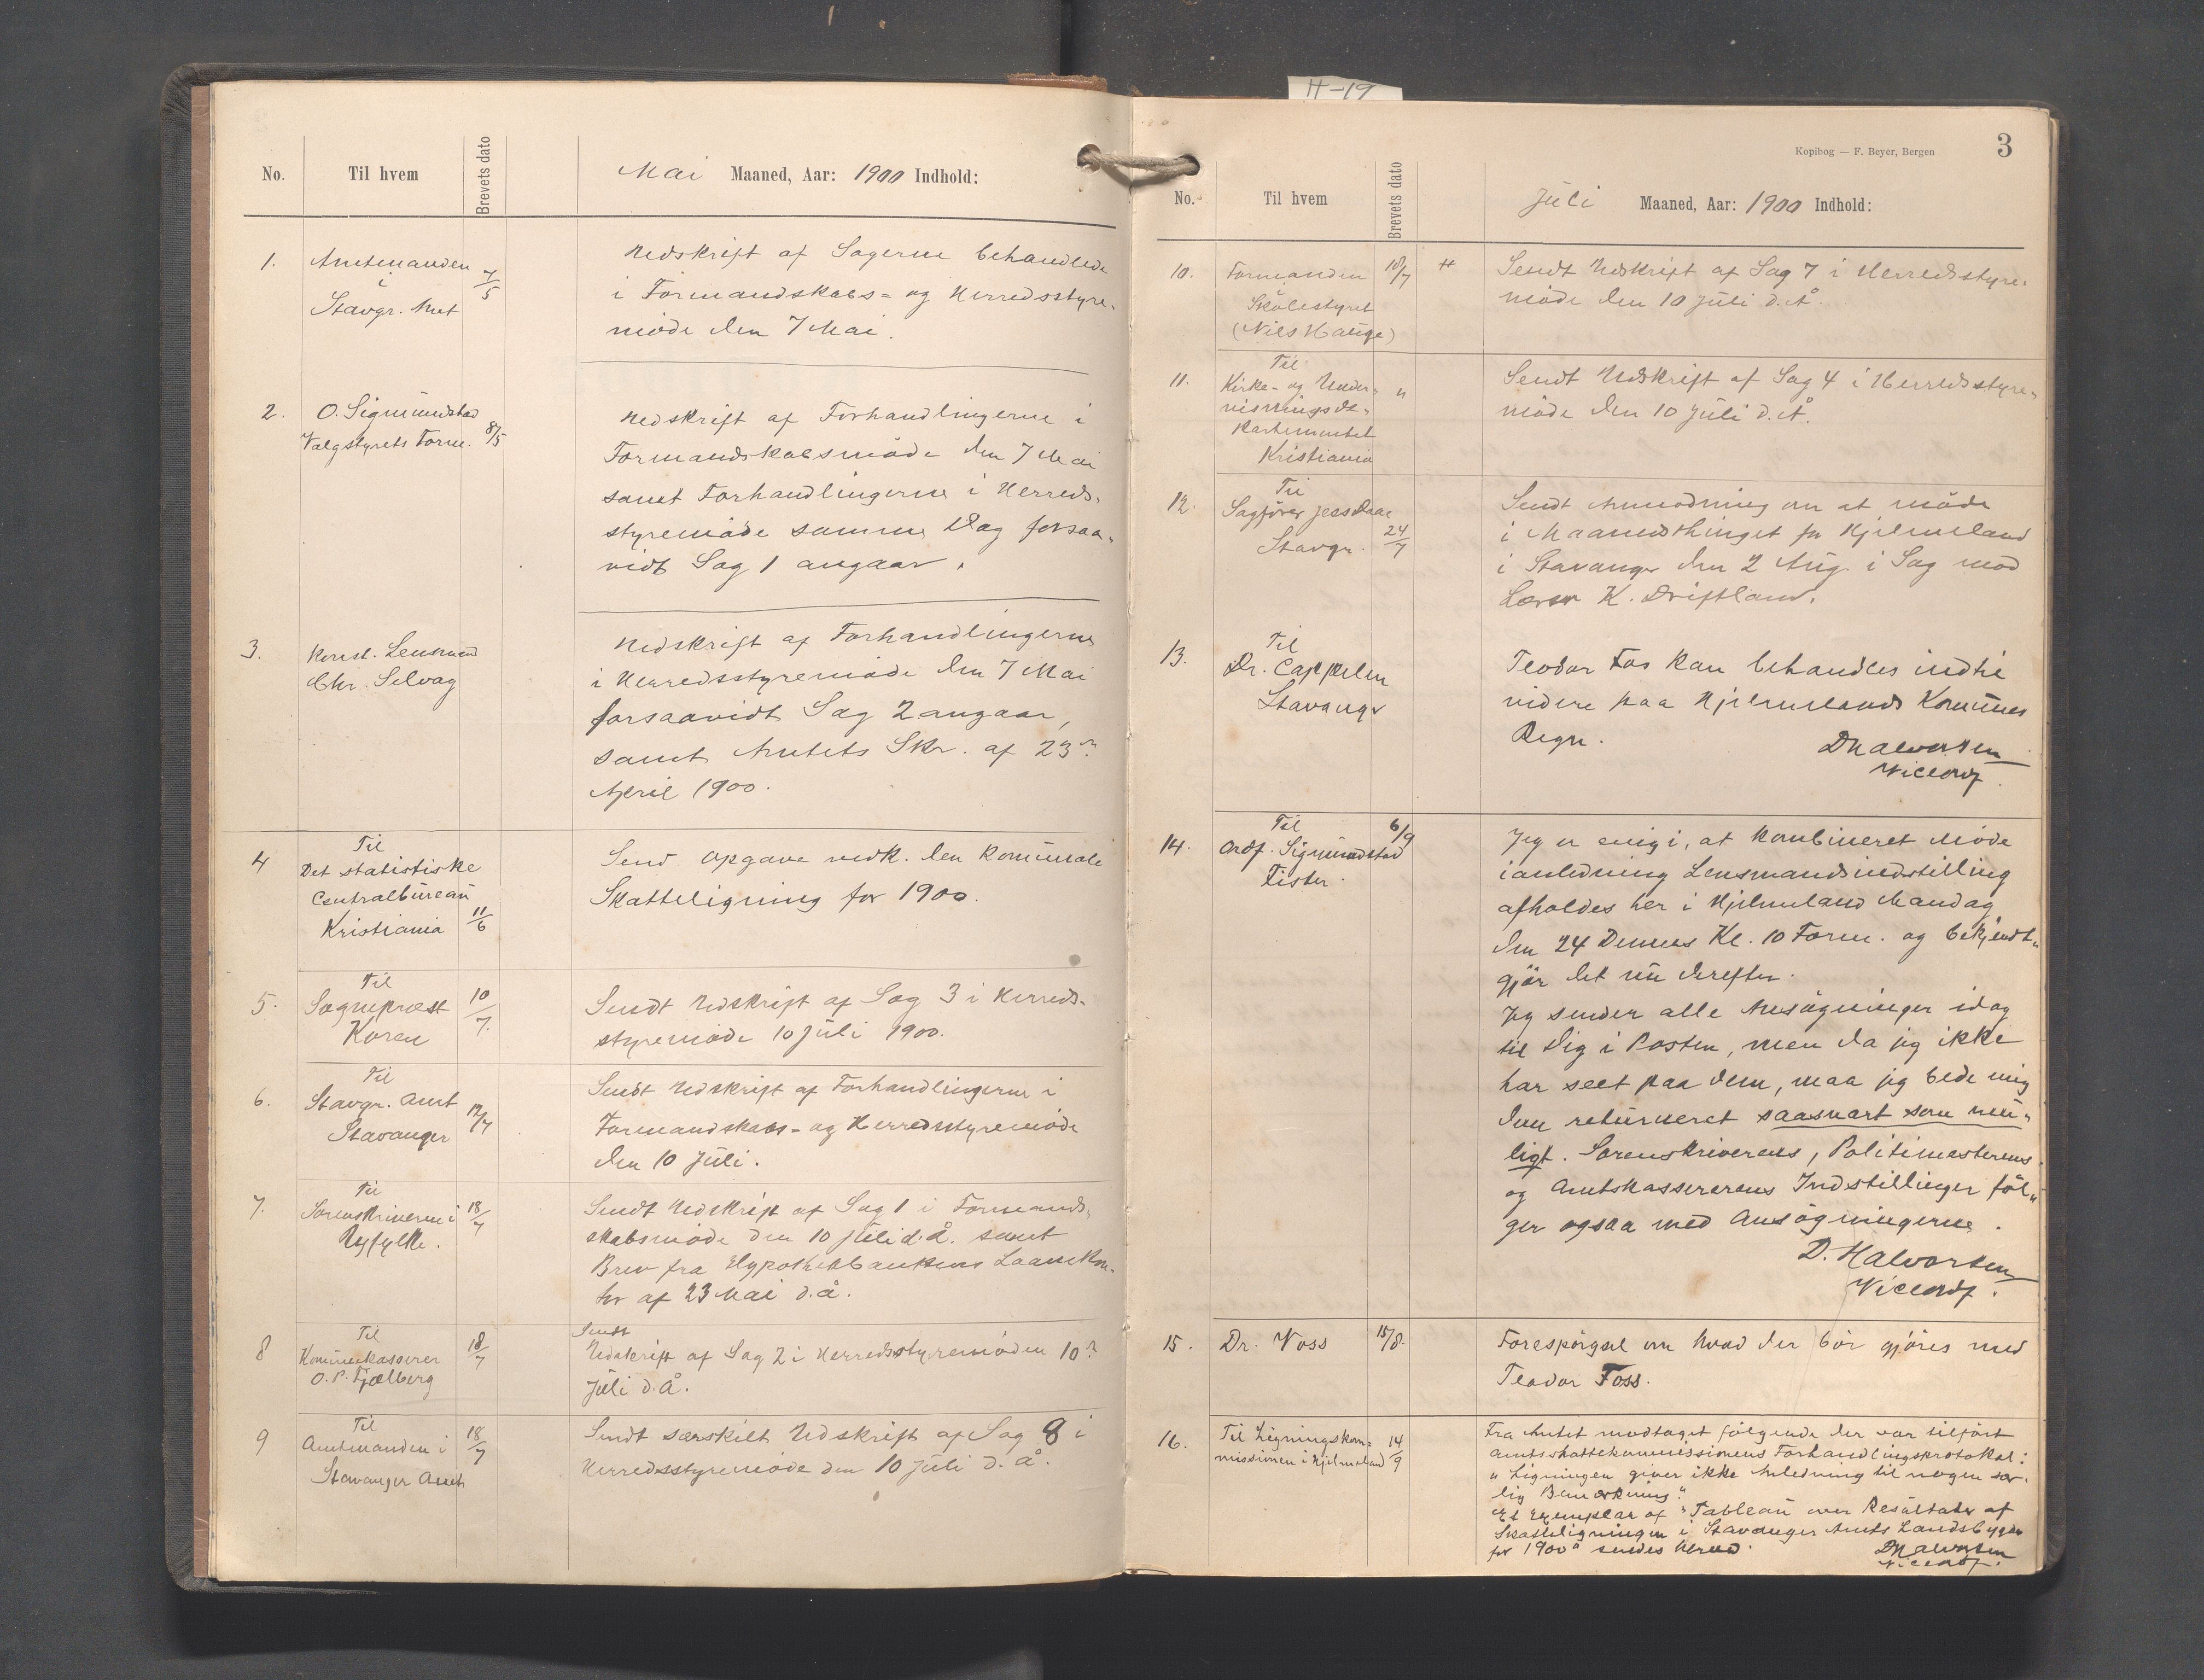 H-19
No. Til hvem Brevets dato Mai Maaned, Aar: 1900 Indhold:
1. Amtmanden i Stavgr. Amt 7/5
Udskrift af Sagerne behandlede
i Formandskabs- og Herredsstyre-
møde den 7 Mai.
2. O. Sigmundstad
Valgstyrets Form. 8/5
Udskrift af Forhandlingerne i
Formandskabsmøde den 7 Mai
samt Forhandlingerne i Herreds-
styremøde samme Dag forsaa-
vidt Sag 1 angaar.
3. Konst. Lensmand
Chr. Selvag
Udskrift af Forhandlingerne
i Herredsstyremøde den 7 Mai
forsaavidt Sag 2 angaar,
samt Amtets Skr. af 23de
April 1900.
4 Til
Det statistiske
Centralbureau
Kristiania 11/6
Send Opgave vedk. den kommunale
Skatteligning for 1900.
5. Til
Sognepræst
Koren 10/7.
Sendt Udskrift af Sag 3 i Herreds-
styremøde 10 Juli 1900.
6. Til
Stavgr. Amt
Stavanger 12/7
Sendt Udskrift af Forhandlingerne i
Formandskabs- og Herredsstyremøde
den 10 Juli.
7. Til
Sorenskriveren i
Ryfylke. 18/7
Sendt Udskrift af Sag 1 i Formand-
skabsmøde den 10 Juli d.å. samt
Brev fra Hypothekbankens Laanekon-
tor af 23 Mai d.å.
8 Til
Kommunekasserer
O. P. Fjælberg 18/7
Sendt
Udskrift af Sag 2 i Herredsstyremøde den 10de
Juli d.Å.
9 Til
Amtmanden i
Stavanger Amt 18/7
Sendt særskilt Udskrift af Sag 8 i
Herredsstyremøde den 10 Juli d.Å.
Kopibog — F. Beyer, Bergen 3
No. Til hvem Brevets dato Juli Maaned, Aar: 1900 Indhold:
10. Formanden
i
Skolestyret
(Nils Hauge) 18/7 #
Sendt Udskrift af Sag 7 i Herredsstyre-
møde den 10 Juli d.Å.
11. Til
Kirke- og Under-
visningsde-
partementet
Kristiania "
Sendt Udskrift af Sag 4 i Herredsstyre-
møde den 10 Juli d.Å.
12. Til
Sagfører Jens Daae
Stavgr. 24/7
Sendt Anmodning om at møde
i Maanedsthinget for Hjelmeland
i Stavanger den 2 Aug. i Sag mod
Lærer K. Driftland.
13. Til
Dr. Cappelen
Stavanger
Teodor Fos kan behandles indtil
videre paa Hjelmelands Kommunes
Regn.
D Halvorsen
Viceordf.
14. Til
Ordf. Sigmundstad
Fister. 6/9
Jeg er enig i, at kombineret Møde
i anledning Lensmandsindstilling
afholdes her i Hjelmeland Mandag
den 24 Dennes Kl. 10 Form. og bekjendt-
gjør det nu derefter.
Jeg sender alle Ansøgninger idag
til Dig i Posten, men da jeg ikke
har seet paa dem, maa jeg bede mig
dem returneret saasnart som mu-
ligt. Sorenskriverens, Politimesterens
og Amtskassererens Indstillinger føl-
ger ogsaa med Ansøgningerne.
D. Halvorsen
Viceordf.
15. Dr. Voss 15/8.
Forespørgsel om hvad der bør gjøres med
Teodor Foss.
16. Til Ligningskom-
missionen i Hjelmeland 14/9
Fra Amtet modtaget følgende der var tilført
Amtsskattekommissionens Forhandlingsprotokol:
"Ligningen giver ikke Anledning til nogen sær-
lig Bemærkning".
Et Exemplar af "Tableau over Resultater af
Skatteligningen i Stavanger Amts Landsbygder
for 1900" sendes herved.
D Halvorsen
Viceordf.